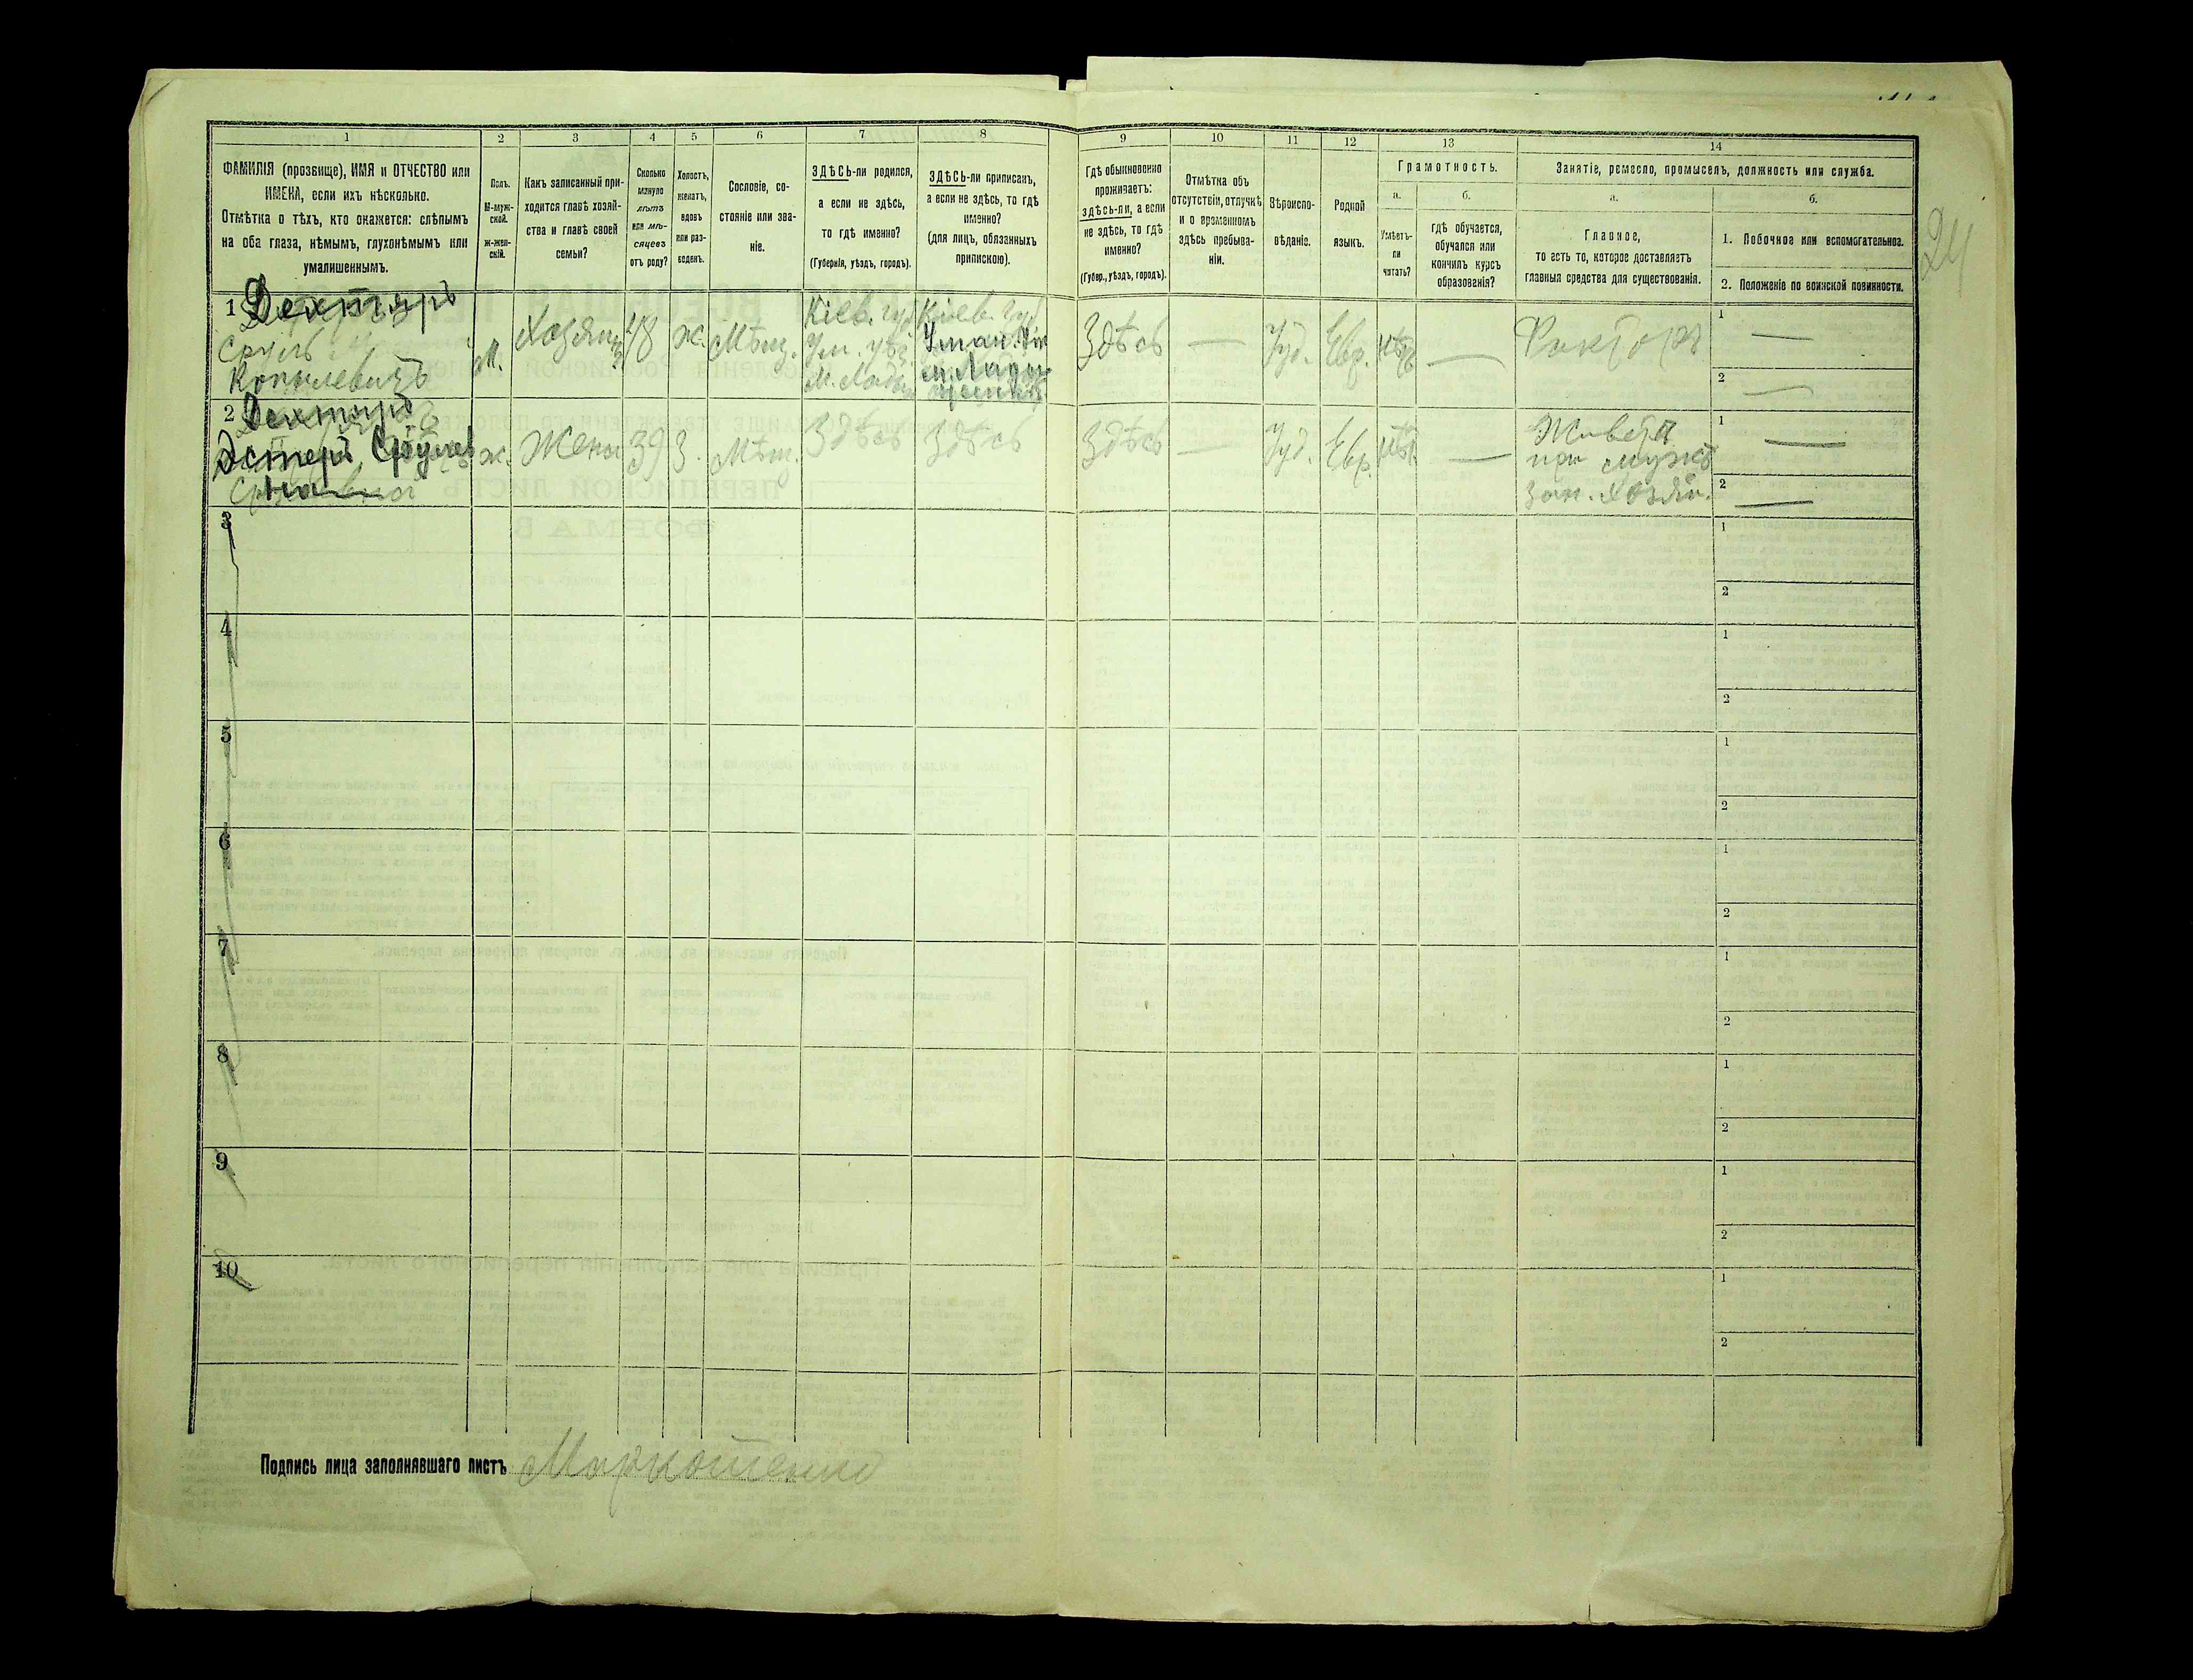 1 2 3 4 5 6 7 8 9 10 11 12 13 14
ФАМИЛІЯ (прозвище), ИМЯ и ОТЧЕСТВО или
ИМЕНА, если ихъ нѣсколько.
Отмѣтка о тѣхъ, кто окажется: слѣпымъ
на оба глаза, нѣмымъ, глухонѣмымъ или
умалишеннымъ.
Полъ.
М-муж-
ской.
ж-жен-
скій.
Какъ записанный при-
ходится главѣ хозяй-
ства и главѣ своей
семьи?
Сколько
минуло
лѣтъ
или мѣ-
сяцевъ
отъ роду?
Холостъ,
женатъ,
вдовъ
или раз-
веденъ.
Сословіе, со-
стояніе или зва-
ніе.
ЗДѢСЬ-ли родился,
а если не здѣсь,
то гдѣ именно?
(Губернія, уѣздъ, городъ).
ЗДѢСЬ-ли приписанъ,
а если не здѣсь, то гдѣ
именно?
(для лицъ, обязанныхъ
припискою).
Гдѣ обыкновенно
проживаетъ:
здѣсь-ли, а если
не здѣсь, то гдѣ
именно?
(Губер., уѣздъ, городъ).
Отмѣтка объ
отсутствіи, отлучкѣ
и о временномъ
здѣсь пребыва-
ніи.
Вѣроиспо-
вѣданіе.
Родной
языкъ.
Грамотность.
а.
Умѣетъ-
ли
читать?
б.
гдѣ обучается,
обучался или
кончилъ курсъ
образованія?
Занятіе, ремесло, промыселъ, должность или служба.
а.
Главное,
то есть то, которое доставляетъ
главныя средства для существованія.
б.
1. Побочное или вспомогательное.
2. Положеніе по воинской повинности.
24
1 Дехтяръ
Сруль
Копылевичъ
М.
Хозяинъ
48
ж.
Мѣщ.
Кіев. губ
Ум. уѣз.
м. Лады
Кіев. губ
Уман.
м. Лады
Здѣсь
—
Іуд.
Евр.
нѣтъ
—
Факторъ
1 —
2 —
2 Дехтяръ
Эстеръ Срулев
на
ж.
Жена
39
З.
Мѣщ.
Здѣсь
Здѣсь
Здѣсь
—
Іуд.
Евр.
нѣтъ
—
Живетъ
при мужѣ
зан. хозяй.
1 —
2 —
3
1
2
4
1
2
5
1
2
6
1
2
7
1
2
8
1
2
9
1
2
10
1
2
Подпись лица заполнявшаго листъ